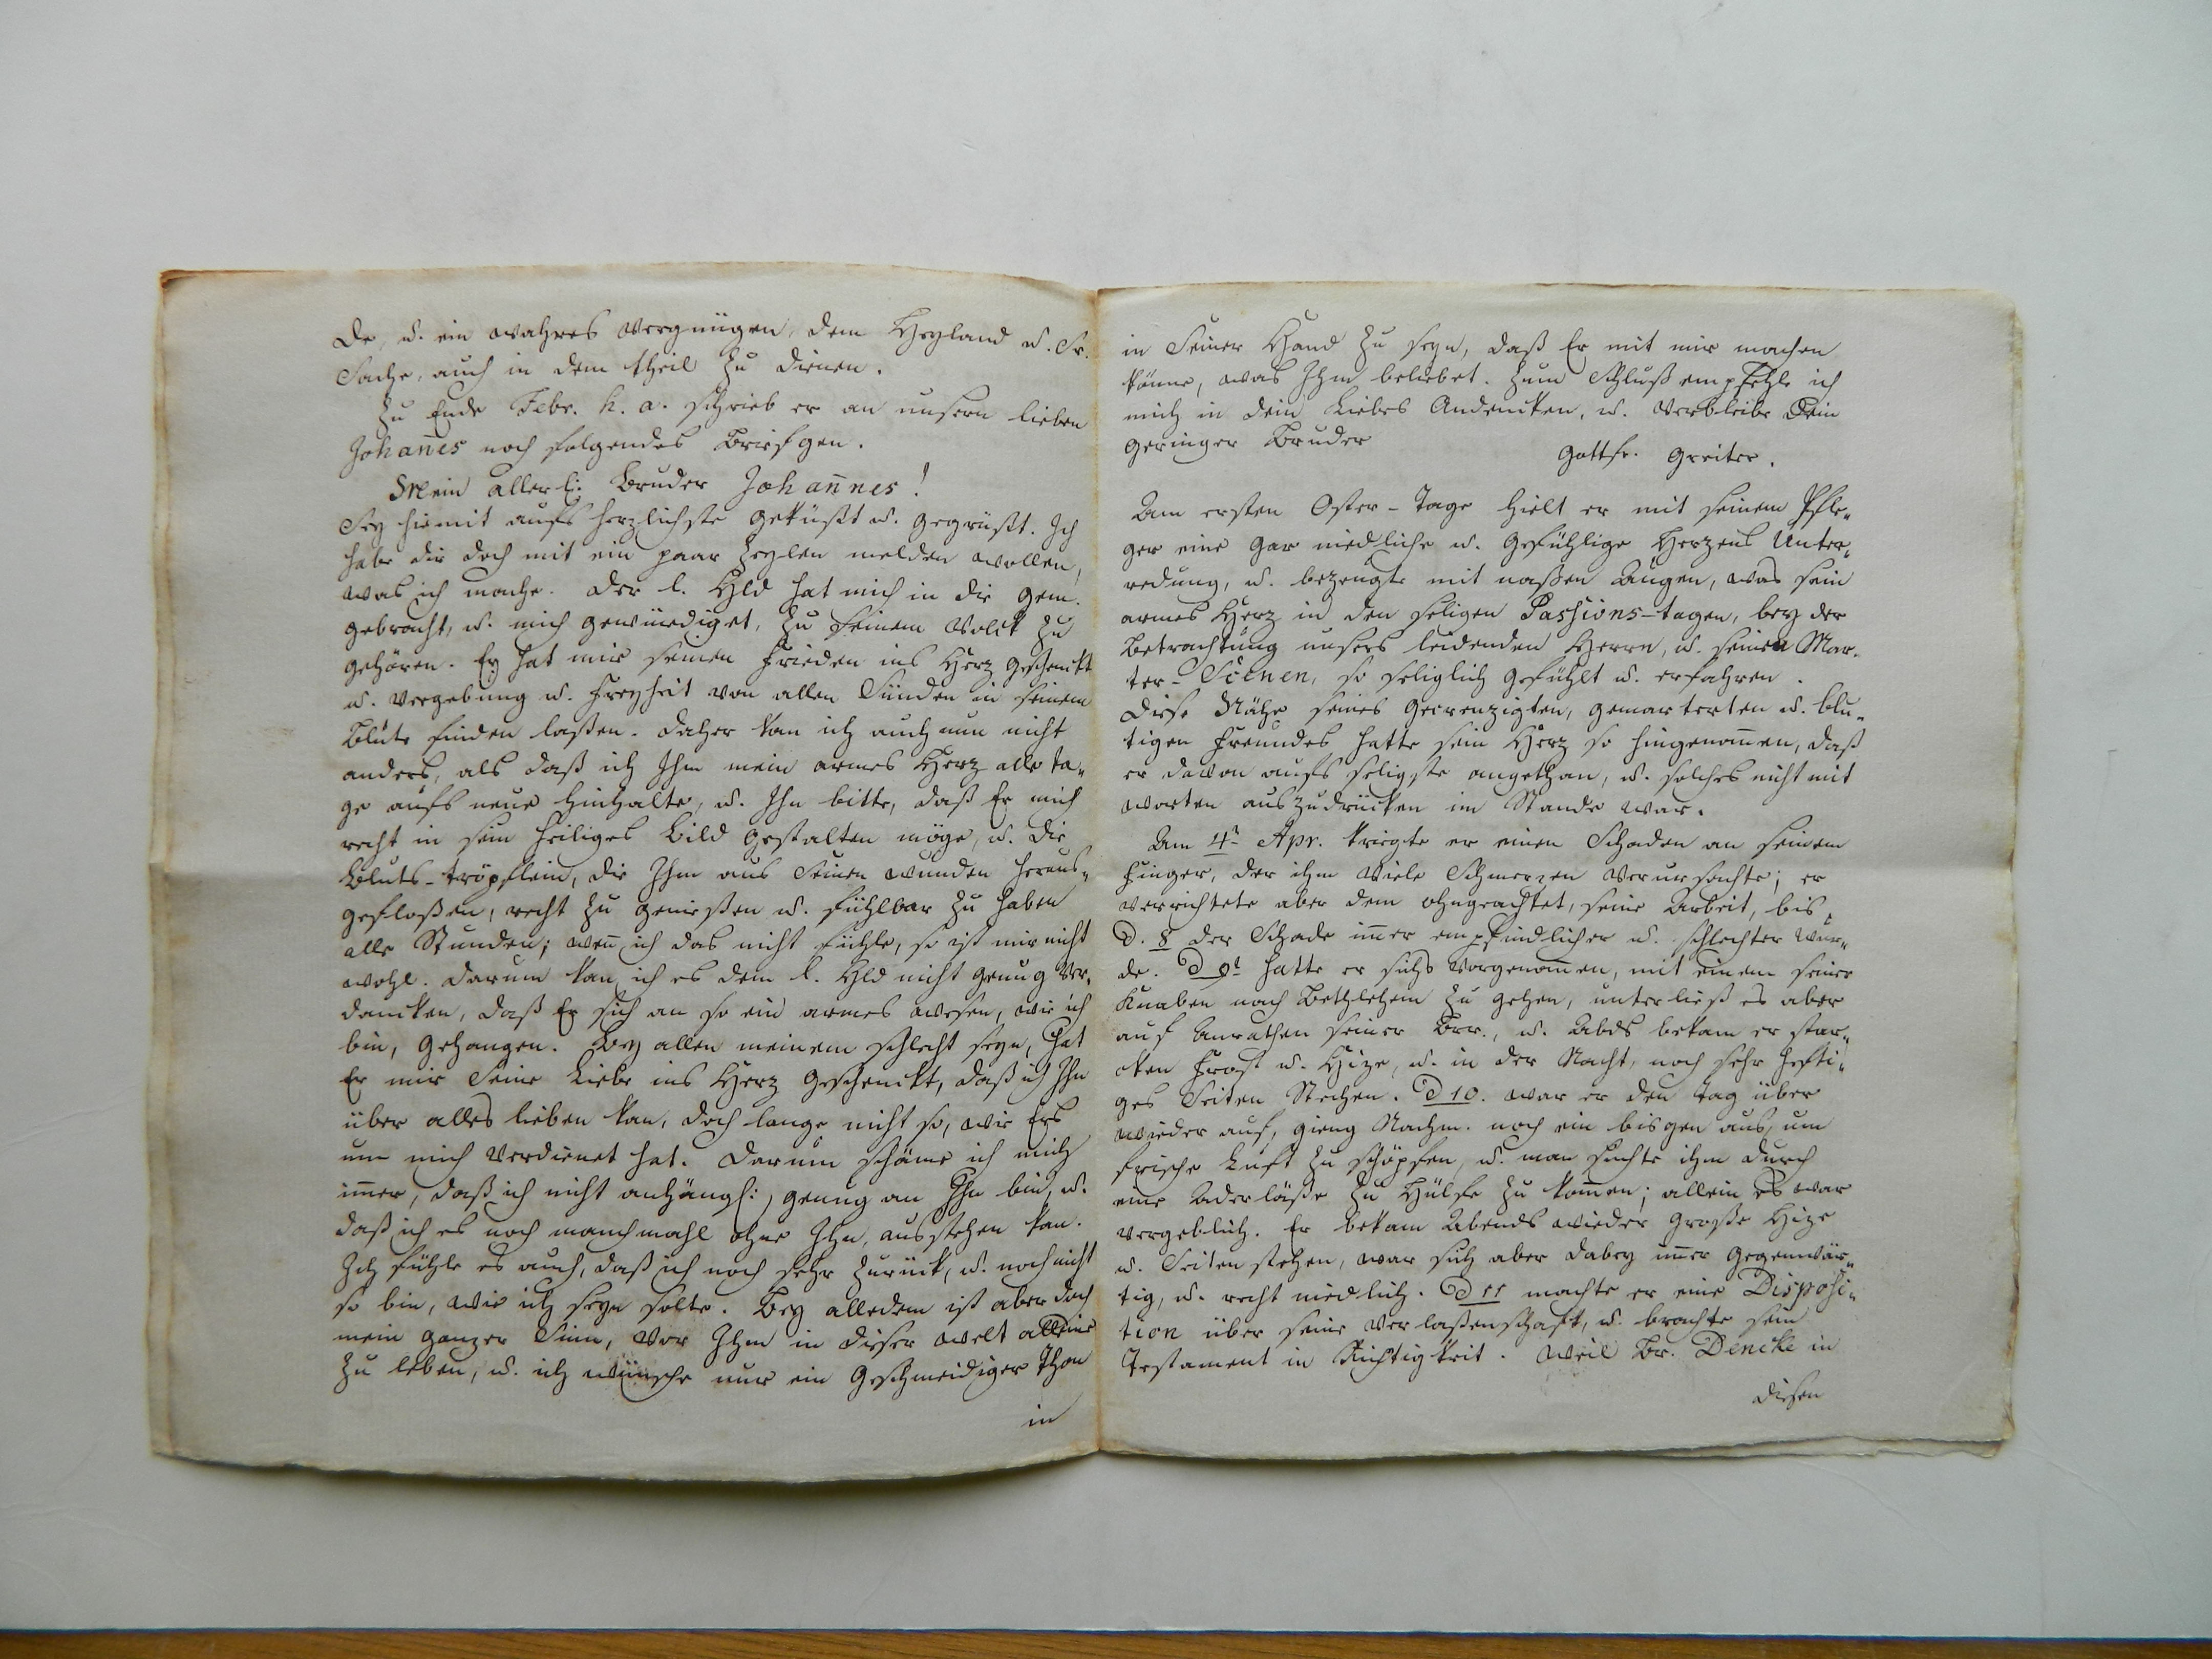 de, u. ein wahres Vergnügen, dem Heyland u. Sr.
Sache, auch in dem theil zu dienen.
Zu Ende Febr. h. a. schrieb er an unsern lieben
Johan̄es noch folgendes Briefgen.
Mein allerl: Bruder Johan̄nes!
Sey hiemit aufs herzlichste geküßt u. gegrüßt. Ich
habe dir doch mit ein paar Zeylen melden wollen,
was ich mache. Der l. Hld hat mich in die Gem.
gebracht, u. mich gewürdiget, zu seinem Volck zu
gehören. Er hat mir seinen Frieden ins Herz geschenckt
u. Vergebung u. Freyheit von allen Sünden in seinem
Blute finden laßen. Daher kan ich auch nun nicht
anders, als daß ich Ihm mein armes Herz alle Ta-
ge aufs neue hinhalte, u. Ihn bitte, daß Er mich
recht in sein heiliges Bild gestalten möge, u. die
Bluts-tröpflein, die Ihm aus Seinen Wunden heraus-
gefloßen, recht zu genießen u. fühlbar zu haben
alle Stunden; wen̄ ich das nicht fühle, so ist mir nicht
wohl. Darum kan ich es dem l. Hld nicht genug ver-
dancken, daß Er sich an so ein armes Wesen, wie ich
bin, gehangen. Bey allen meinem schlecht seyn, hat
Er mir Seine Liebe ins Herz geschenckt, daß ich Ihn
über alles lieben kan, doch lange nicht so, wie Ers
um mich verdienet hat. Darum schäme ich mich
im̄er, daß ich nicht anhängl: genug an Ihn bin, u.
daß ich es noch manchmahl ohne Ihn, ausstehen kan.
Ich fühle es auch, daß ich noch sehr zurück, u. noch nicht
so bin, wie ich seyn solte. Bey alledem ist aber doch
mein ganzer Sinn, vor Ihm in dieser Welt alleine
zu leben, u. ich wünsche nur ein geschmeidiger Thon
in
in Seiner Hand zu seyn, daß Er mit mir machen
könne, was Ihm beliebet. Zum Schluß empfehle ich
mich in dein liebes Andencken, u. verbleibe Dein
geringer Bruder
Gottfr. Greiter.
Am ersten Oster-Tage hielt er mit seinem Pfle-
ger eine gar niedliche u. gefühlige Herzens Unter-
redung, u. bezeugte mit naßen Augen, was sein
armes Herz in den seligen Passions-tagen, bey der
Betrachtung unsers leidenden Herrn, u. seinen Mar-
ter-Scenen, so seliglich gefühlt u. erfahren.
Diese Nähe seines gecreuzigten, gemarterten u. blu-
tigen Freundes hatte sein Herz so hingenom̄en, daß
er davon aufs seligste angethan, u. solches nicht mit
worten auszudrücken im Stande war.
Am 4n Apr. kriegte er einen Schaden an seinem
Finger, der ihm viele Schmerzen verursachte; er
verrichtete aber dem ohngeachtet, seine Arbeit, bis
d. 8 der Schade im̄er empfindlicher u. schlechter wur-
de. D 9t hatte er sichs vorgenom̄en, mit einem seiner
Knaben nach Bethlehem zu gehen, unterließ es aber
auf Anrathen seiner Brr., u. Abds bekam er star-
cken Frost u. Hize, u. in der Nacht, noch sehr hefti-
ges Seiten Stechen. D 10. war er den Tag über
wieder auf, gieng Nachm. noch ein bisgen aus, um
frische Luft zu schöpfen, u. man suchte ihm durch
eine Aderläße zu Hülfe zu kom̄en; allein es war
vergeblich. Er bekam Abends wieder große Hize
u. Seitenstechen, war sich aber dabey im̄er gegenwär-
tig, u. recht niedlich. D 11 machte er eine Disposi-
tion über seine Verlaßenschaft, u. brachte sein
Testament in Richtigkeit. Weil Br. Dencke in
diesen